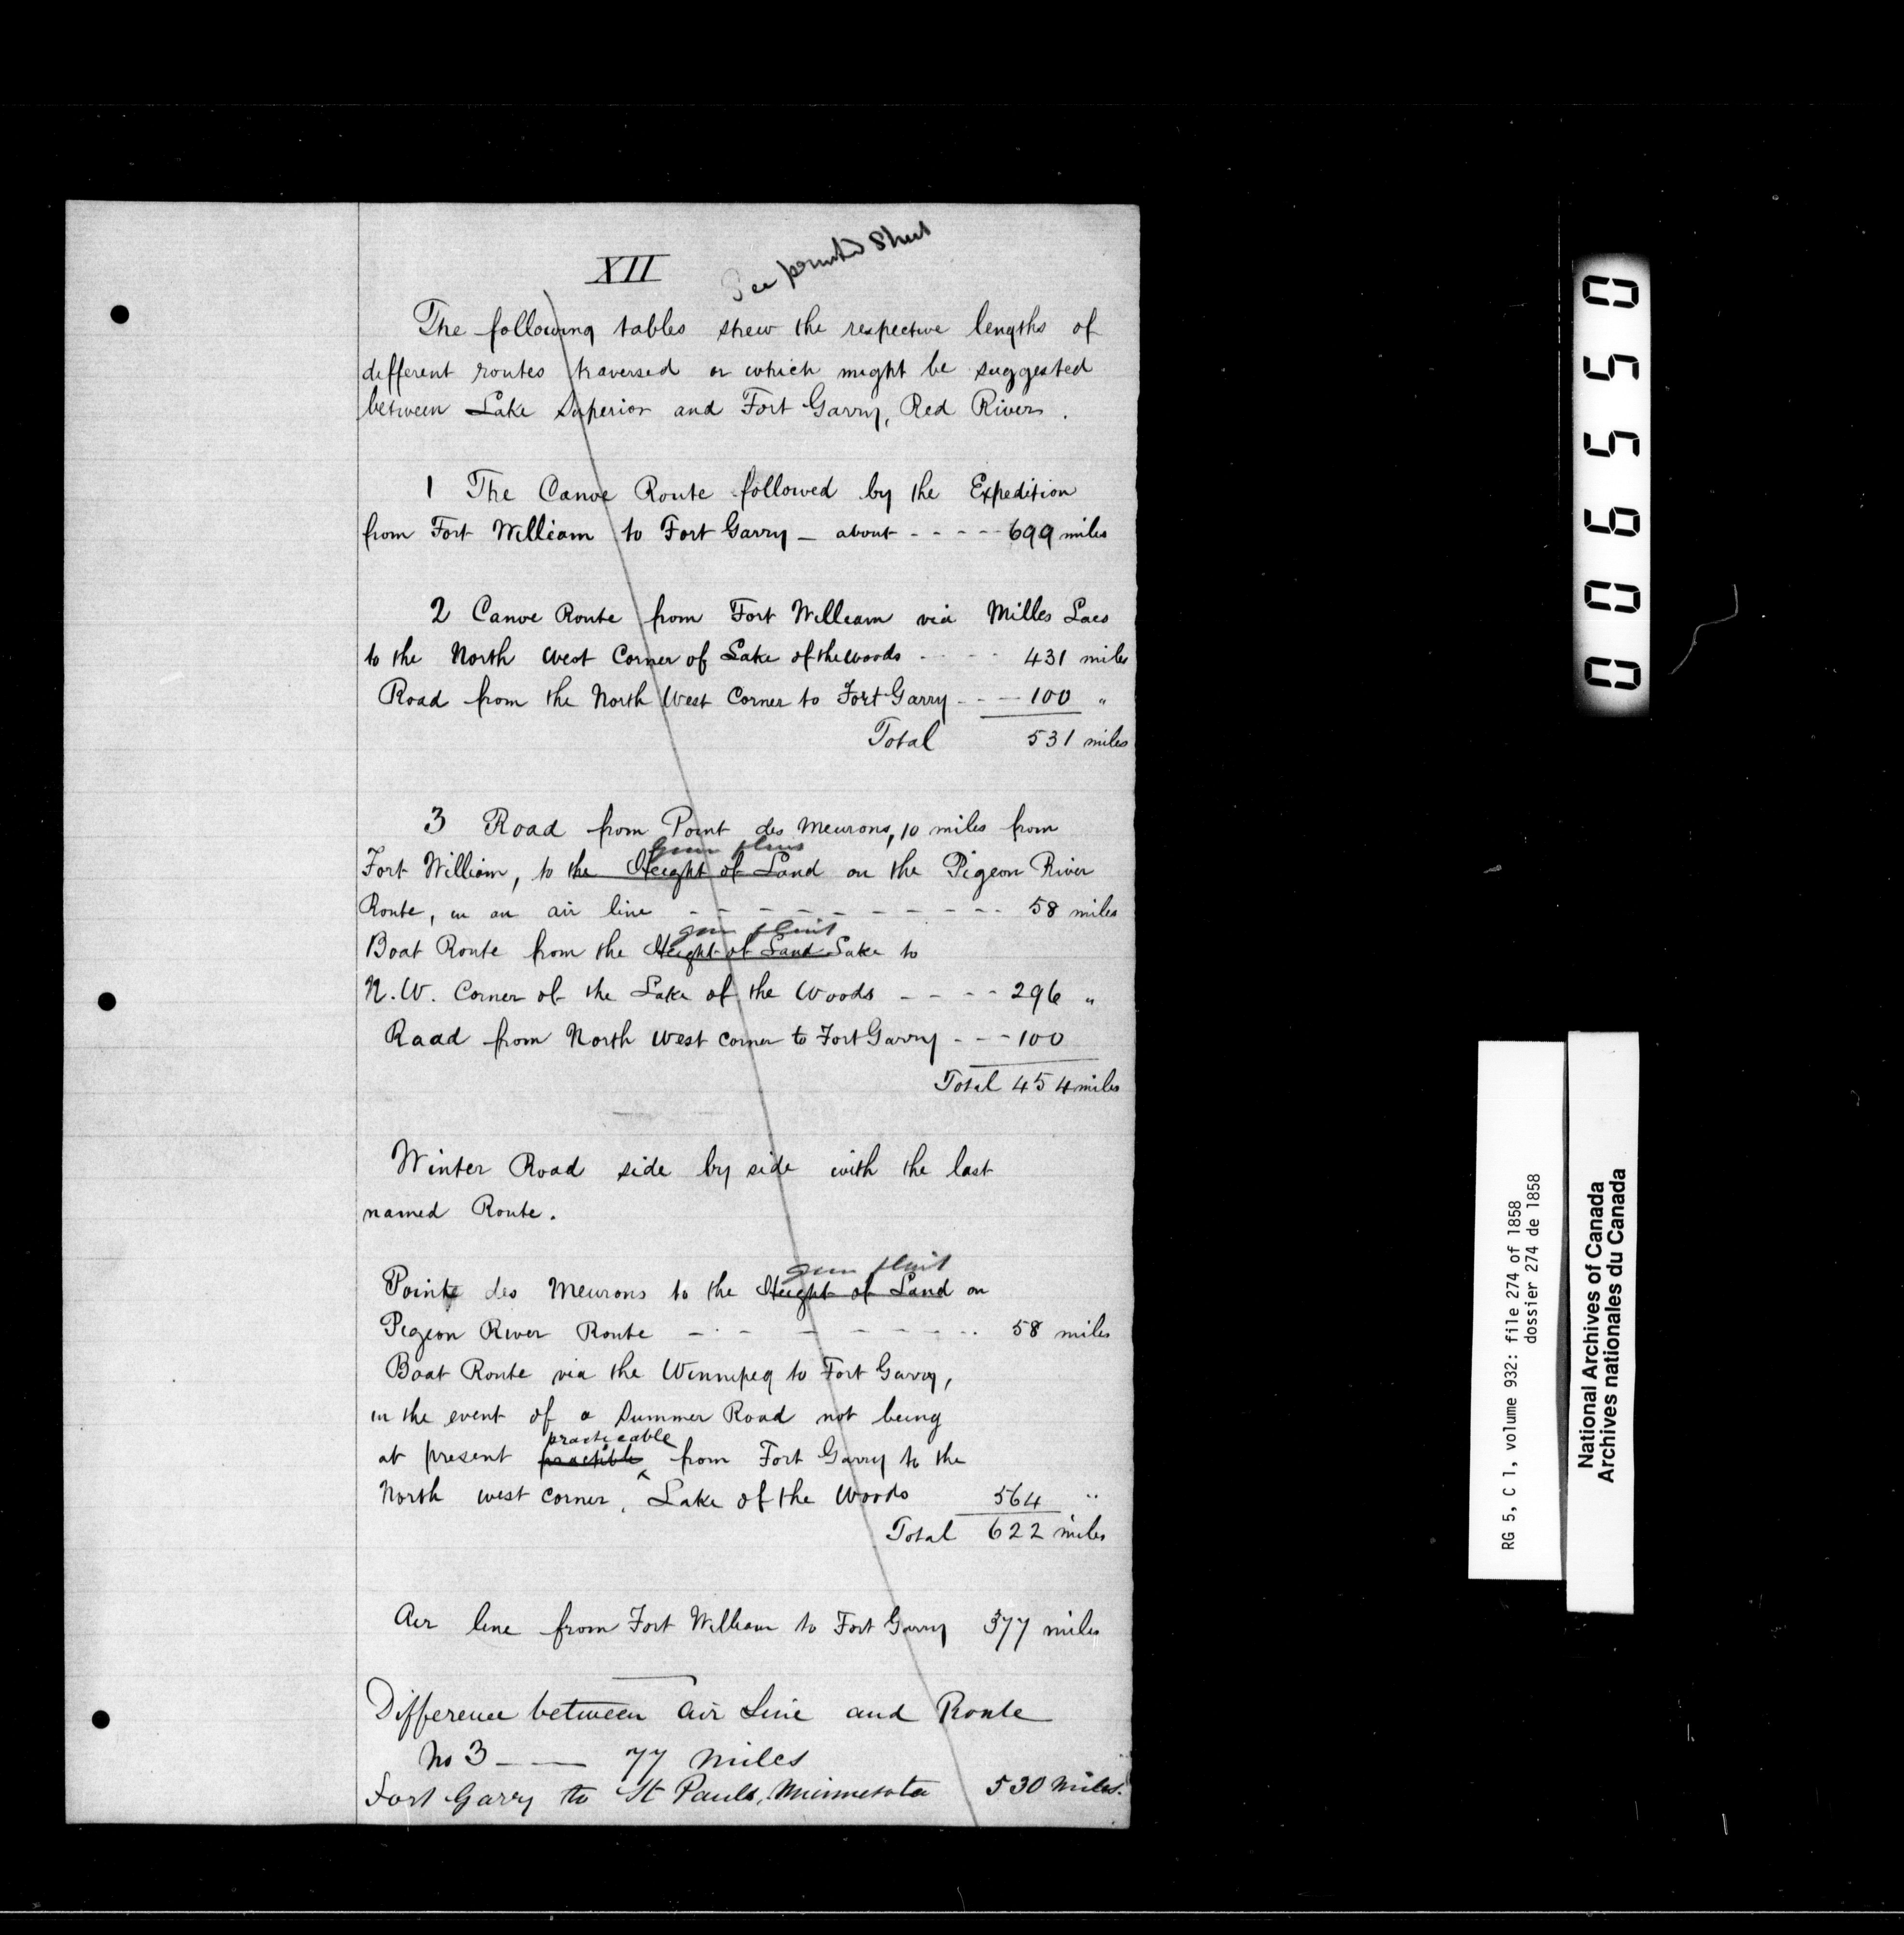 XII
See printed Sheet
The following tables shew the respective lengths of
different routes traversed or which might be suggested
between Lake Superior and Fort Garry, Red River.
1 The Canoe Route followed by the Expedition
from Fort William to Fort Garry - about - - - - 699 miles
2 Canoe Route from Fort William via Milles Lacs
to the North West Corner of Lake of the Woods - - - - 431 miles
Road from the North West Corner to Fort Garry - - - 100 "
Total 531 miles
3 Road from Point des Meurons, 10 miles from
gun flint
Fort William, to the Height of Land on the Pigeon River
Route, in an air line - - - - - - - - - - 58 miles
gun flint
Boat Route from the Height of Land Lake to
N.W. Corner of the Lake of the Woods - - - - 296 "
Road from North West Corner to Fort Garry - - - 100
Total 454 miles
Winter Road side by side with the last
named Route.
gun flint
Pointe des Meurons to the Height of Land on
Pigeon River Route - - - - - - - - 58 miles
Boat Route via the Winnipeg to Fort Garry,
in the event of a Summer Road not being
practicable
at present practible from Fort Garry to the
North west corner, Lake of the Woods 564 "
Total 622 miles
Air line from Fort William to Fort Garry 377 miles
Difference between Air Line and Route
No 3 - - - 77 miles
Fort Garry to St Pauls, Minnesota 530 miles.
006550
RG 5, C 1, volume 932: file 274 of 1858
dossier 274 de 1858
National Archives of Canada
Archives nationales du Canada